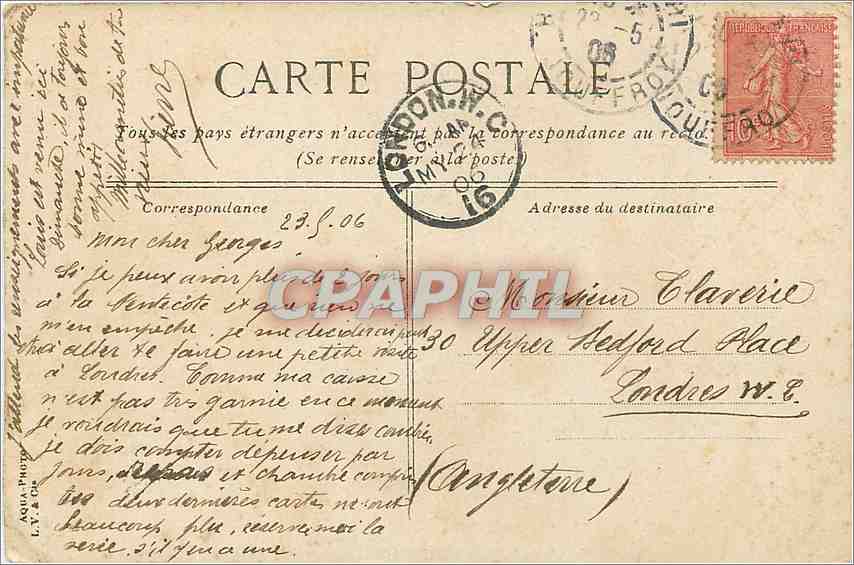 CARTE POSTALE
Tous les pays étrangers n'acceptent pas la correspondance au recto
(Se renseigner à la poste)
Correspondance
Adresse du destinataire
RÉPUBLIQUE FRANÇAISE
10
LONDON. W.C.
MY 24
06
16
23-5
06
JOUFFROY
JOUFFROY
23.5.06
Mon cher Georges,
Si je peux avoir plus de 2 jours
à la Pentecôte et que rien ne
m'en empêche, je me deciderai peut
être à aller te faire une petite visite
à Londres. Comme ma caisse
n'est pas très garnie en ce moment
je voudrais que tu me dises combien
je dois compter dépenser par
jours, et chambre compris
deux dernières cartes ne sont
beaucoup plu, réserve moi la
série, s'il y en a une.
J'attends les renseignements avec impatience
Louis est venu ici
dimanche, il a toujours
bonne mine et bon
appétit
Mille amitiés de ton
vieux
Pierre
Monsieur Claverie
30 Upper Bedford Place
Londres W.C.
(Angleterre)
AQUA-PHOTO
L.V. & Cie
CPAPHIL